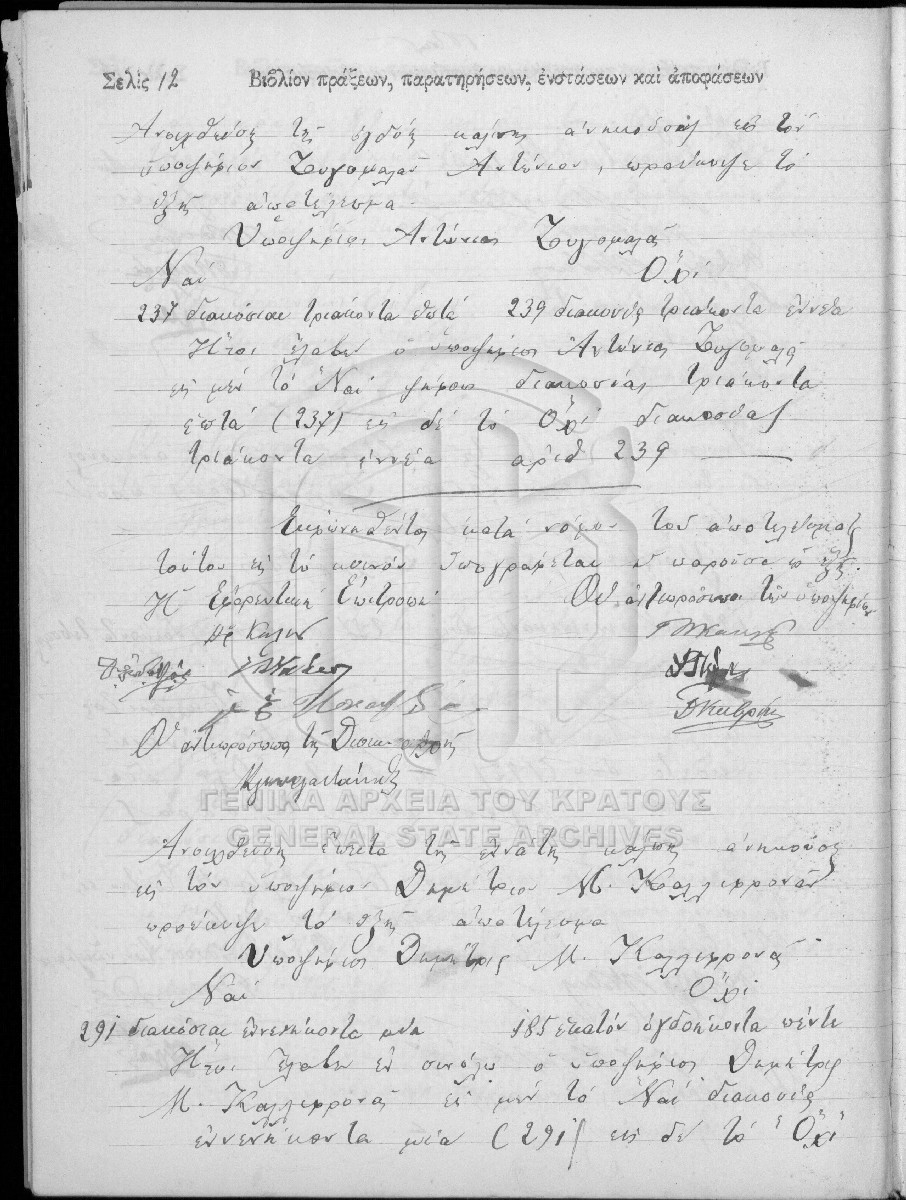 Σελὶς 12 Βιβλίον πράξεων, παρατηρήσεων, ἐνστάσεων καὶ ἀποφάσεων
Ἀνοιχθείσης τῆς κάλπης ἀνηκούσης εἰς τὸν
ὑποψήφιον Ζυγομαλᾶν Ἀντώνιον, προέκυψε τὸ
ἑξῆς ἀποτέλεσμα
Ὑποψήφιος Ἀντώνιος Ζυγομαλᾶς
Ναί Ὄχι
237 διακόσιαι τριάκοντα ἑπτά 239 διακόσιαι τριάκοντα ἐννέα
Ἤτοι ἔλαβεν ὁ ὑποψήφιος Ἀντώνιος Ζυγομαλᾶς
εἰς μέν τό Ναί ψήφους διακοσίας τριάκοντα
ἑπτά (237) εἰς δέ τό Ὄχι διακοσίας
τριάκοντα ἐννέα ἀριθ 239
Ἐκφωνηθέντος κατά νόμον τοῦ ἀποτελέσματος
τούτου εἰς τό κοινόν ὑπογράφεται ἡ παροῦσα ὡς ἑξῆς.
Ἡ Ἐφορευτική Ἐπιτροπή Οἱ ἀντιπρόσωποι τῶν ὑποψηφίων
Ὁ ἀντιπρόσωπος τῆς Δικαστ. ἀρχῆς
ΓΕΝΙΚΑ ΑΡΧΕΙΑ ΤΟΥ ΚΡΑΤΟΥΣ
GENERAL STATE ARCHIVES
Ἀνοιχθείσης ἔπειτα τῆς ἐννάτης κάλπης ἀνηκούσης
εἰς τόν ὑποψήφιον Δημήτριον Μ. Καλλιφρονᾶν
προέκυψε τό ἑξῆς ἀποτέλεσμα
Ὑποψήφιος Δημήτριος Μ. Καλλιφρονᾶς
Ναί Ὄχι
291 διακόσιαι ἐννενήκοντα μία 185 ἑκατόν ὀγδοήκοντα πέντε
Ἤτοι ἔλαβεν ἐν συνόλῳ ὁ ὑποψήφιος Δημήτριος
Μ. Καλλιφρονᾶς εἰς μέν τό Ναί διακοσίας
ἐννενήκοντα μία (291) εἰς δέ τό Ὄχι